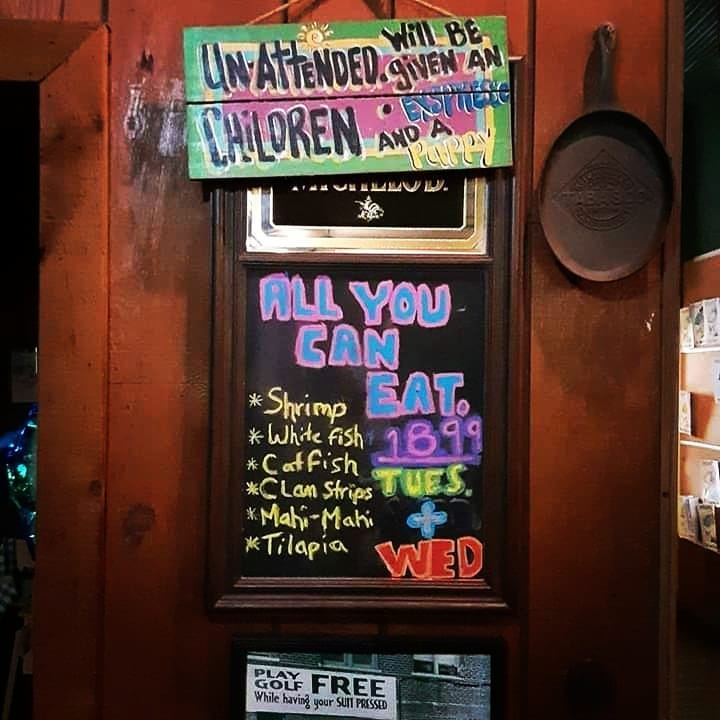 UN-ATTENDED
CHILDREN
WILL BE
GIVEN AN
AND A
PUPPY
MICHELOB.
TABASCO
ALL YOU
CAN
EAT.
18.99
TUES.
+
WED
* Shrimp
* White fish
* Catfish
* CLan Strips
* Mahi-Mahi
* Tilapia
PLAY
GOLF FREE
While having your SUIT PRESSED